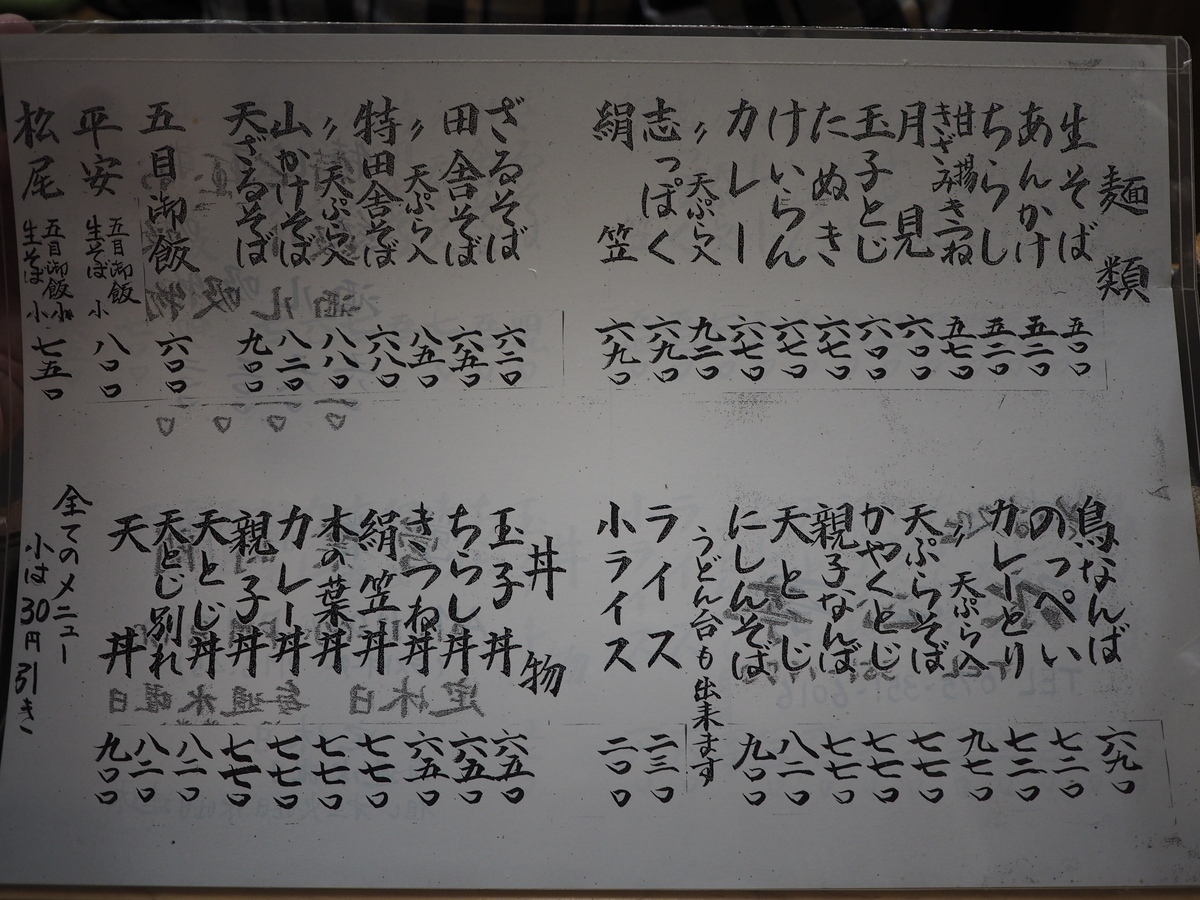 麺類
生そば 五〇〇
あんかけ 五二〇
ちらし 五二〇
甘揚きざみきつね 五七〇
月見 六〇〇
玉子とじ 六〇〇
たぬき 六七〇
けいらん 六七〇
カレー 六七〇
〃天ぷら入 九二〇
志っぽく 六九〇
絹笠 六九〇
ざるそば 六二〇
田舎そば 六五〇
〃天ぷら入 八五〇
特田舎そば 六八〇
〃天ぷら入 八八〇
山かけそば 八二〇
天ざるそば 九〇〇
五目御飯 六〇〇
平安 五目御飯 生そば小 八〇〇
松尾 五目御飯小 生そば小 七五〇
鳥なんば 六九〇
のっぺい 七二〇
カレーとり 七二〇
〃天ぷら入 九七〇
天ぷらそば 七七〇
かやくとじ 七七〇
親子なんば 七七〇
天とじ 八二〇
にしんそば 九〇〇
うどん台も出来ます
ライス 二三〇
小ライス 二〇〇
丼物
玉子丼 六五〇
ちらし丼 六五〇
きつね丼 六五〇
絹笠丼 七七〇
木の葉丼 七七〇
カレー丼 七七〇
親子丼 七七〇
天とじ丼 八二〇
天とじ別れ 八二〇
天丼 九〇〇
全てのメニュー
小は30円引き